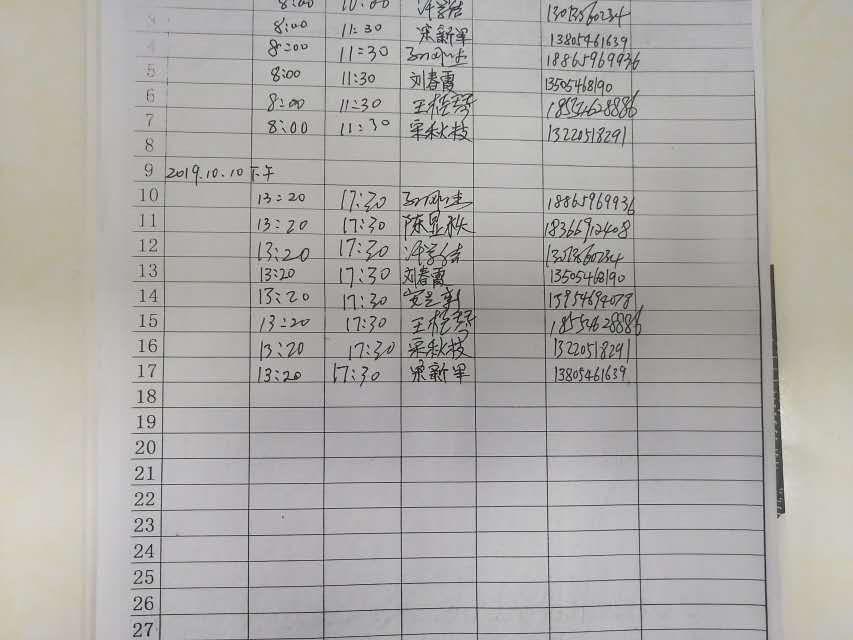 8:00 10:00 13013560234
3 8:00 11:30 梁新军 13805461639
4 8:00 11:30 18865969936
5 8:00 11:30 刘春霞 13505468190
6 8:00 11:30 王桂琴 18554628886
7 8:00 11:30 宋秋枝 13220518291
8
9 2019.10.10 下午
10 13:20 17:30 18865969936
11 13:20 17:30 陈显秋 18366912408
12 13:20 17:30
13 13:20 17:30 刘春霞 13505468190
14 13:20 17:30 15954694078
15 13:20 17:30 王桂琴 18554628886
16 13:20 17:30 宋秋枝 13220518291
17 13:20 17:30 梁新军 13805461639
18
19
20
21
22
23
24
25
26
27